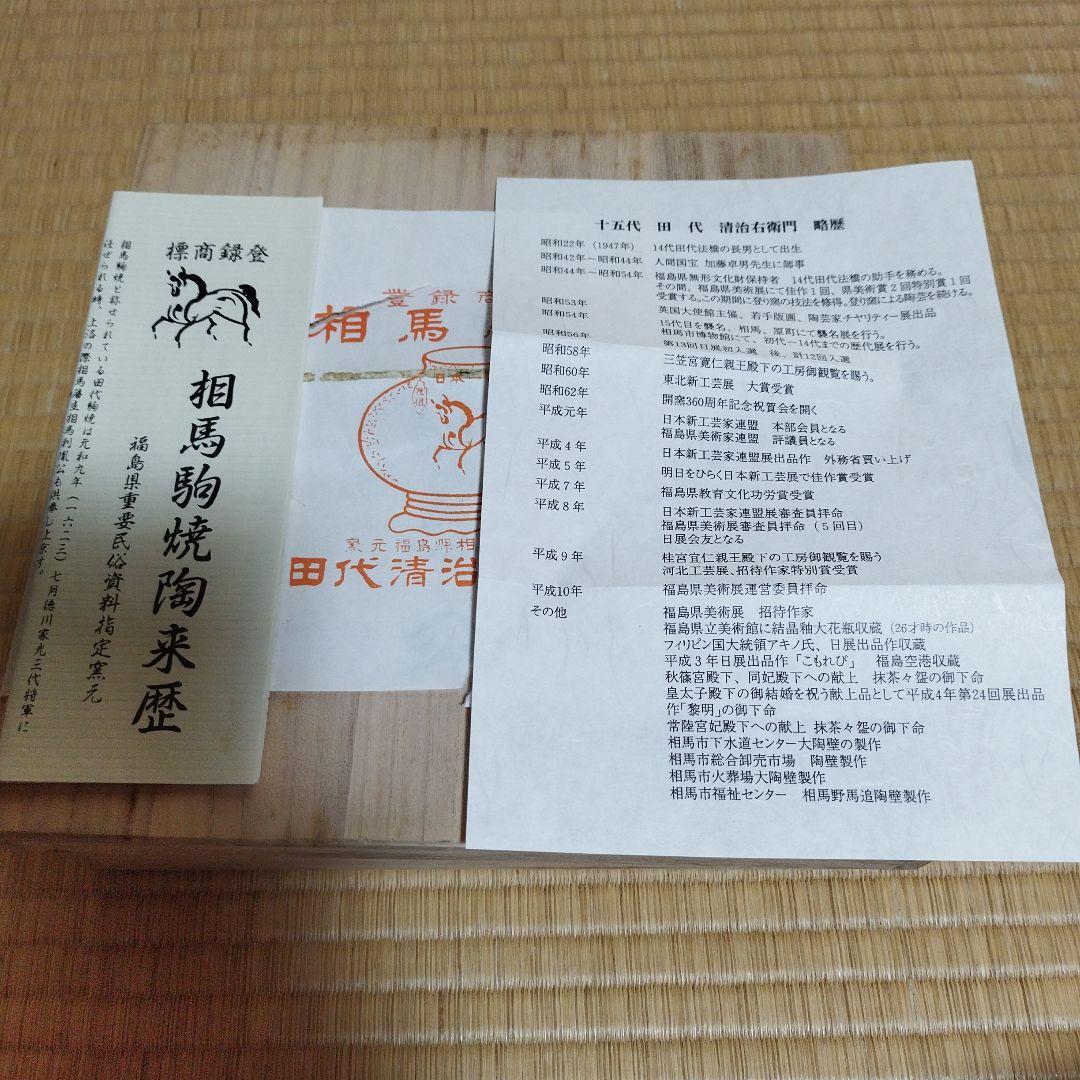 登録商標
相馬駒焼陶来歴
福島県重要民俗資料指定窯元
相馬駒焼と称せられている田代駒焼は元和九年(一六二三)七月徳川家光三代将軍に
任せられる時、上洛の際相馬藩主相馬利胤公も供奉し上京す。
登録商
相馬
日本
窯元福島縣相
田代清治
十五代 田代 清治右衛門 略歴
昭和22年(1947年) 14代田代法橋の長男として出生
昭和42年～昭和44年 人間国宝 加藤卓男先生に師事
昭和44年～昭和54年 福島県無形文化財保持者 14代田代法橋の助手を務める。
その間、福島県美術展にて佳作1回、県美術賞2回特別賞1回
受賞する。この期間に登り窯の技法を修得。登り窯による陶芸を続ける。
昭和53年 英国大使館主催、若手版画、陶芸家チャリティー展出品
昭和54年 15代目を襲名、相馬、原町にて襲名展を行う。
相馬市博物館にて、初代～14代までの歴代展を行う。
昭和56年 第13回日展初入選 後、計12回入選
昭和58年 三笠宮寛仁親王殿下の工房御観覧を賜う。
昭和60年 東北新工芸展 大賞受賞
昭和62年 開窯360周年記念祝賀会を開く
平成元年 日本新工芸家連盟 本部会員となる
福島県美術家連盟 評議員となる
平成4年 日本新工芸家連盟展出品作 外務省買い上げ
平成5年 明日をひらく日本新工芸展で佳作賞受賞
平成7年 福島県教育文化功労賞受賞
平成8年 日本新工芸家連盟展審査員拝命
福島県美術展審査員拝命(5回目)
日展会友となる
平成9年 桂宮宜仁親王殿下の工房御観覧を賜う
河北工芸展、招待作家特別賞受賞
平成10年 福島県美術展運営委員拝命
その他 福島県美術展 招待作家
福島県立美術館に結晶釉大花瓶収蔵(26才時の作品)
フィリピン国大統領アキノ氏、日展出品作収蔵
平成3年日展出品作「こもれび」 福島空港収蔵
秋篠宮殿下、同妃殿下への献上 抹茶々盌の御下命
皇太子殿下の御結婚を祝う献上品として平成4年第24回展出品
作「黎明」の御下命
常陸宮妃殿下への献上 抹茶々盌の御下命
相馬市下水道センター大陶壁の製作
相馬市総合卸売市場 陶壁製作
相馬市火葬場大陶壁製作
相馬市福祉センター 相馬野馬追陶壁製作